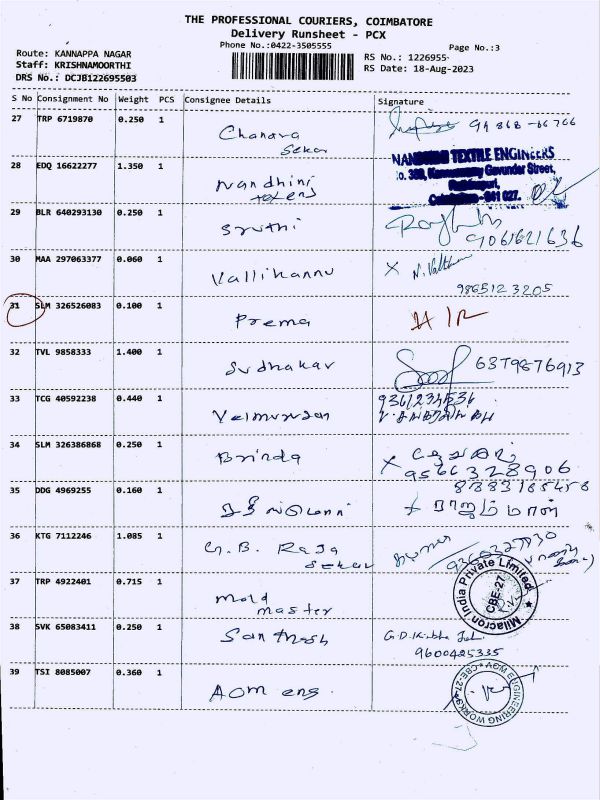 THE PROFESSIONAL COURIERS, COIMBATORE
Delivery Runsheet - PCX
Phone No.:0422-3505555
Page No.:3
Route: KANNAPPA NAGAR
Staff: KRISHNAMOORTHI
DRS No.: DCJB122695503
RS No.: 1226955
RS Date: 18-Aug-2023
S No Consignment No Weight PCS Consignee Details Signature
27 TRP 6719870 0.250 1 Chandra Sekar
28 EDQ 16622277 1.350 1 Nandhini
TEXTILE ENGINEERS
Street,
29 BLR 640293130 0.250 1 Sruthi 9061621636
30 MAA 297063377 0.060 1 Vallikannu X N. Valli
9865123205
31 SLM 326526083 0.100 1 Prema
32 TVL 9858333 1.400 1 Sudhakar 6379876913
33 TCG 40592238 0.440 1 Velmurugan
34 SLM 326386868 0.250 1 Brinda X
9566328906
35 DDG 4969255 0.160 1
8883185458
ராஜம்மாள்
36 KTG 7112246 1.085 1 G.B. Raja Sekar
37 TRP 4922401 0.715 1 Mold master
Milacron India Private Limited
CBE-27
38 SVK 65083411 0.250 1 Santhosh
9600425335
39 TSI 8085007 0.360 1 AOM eng
AOM ENGINEERING WORKS
CBE-27